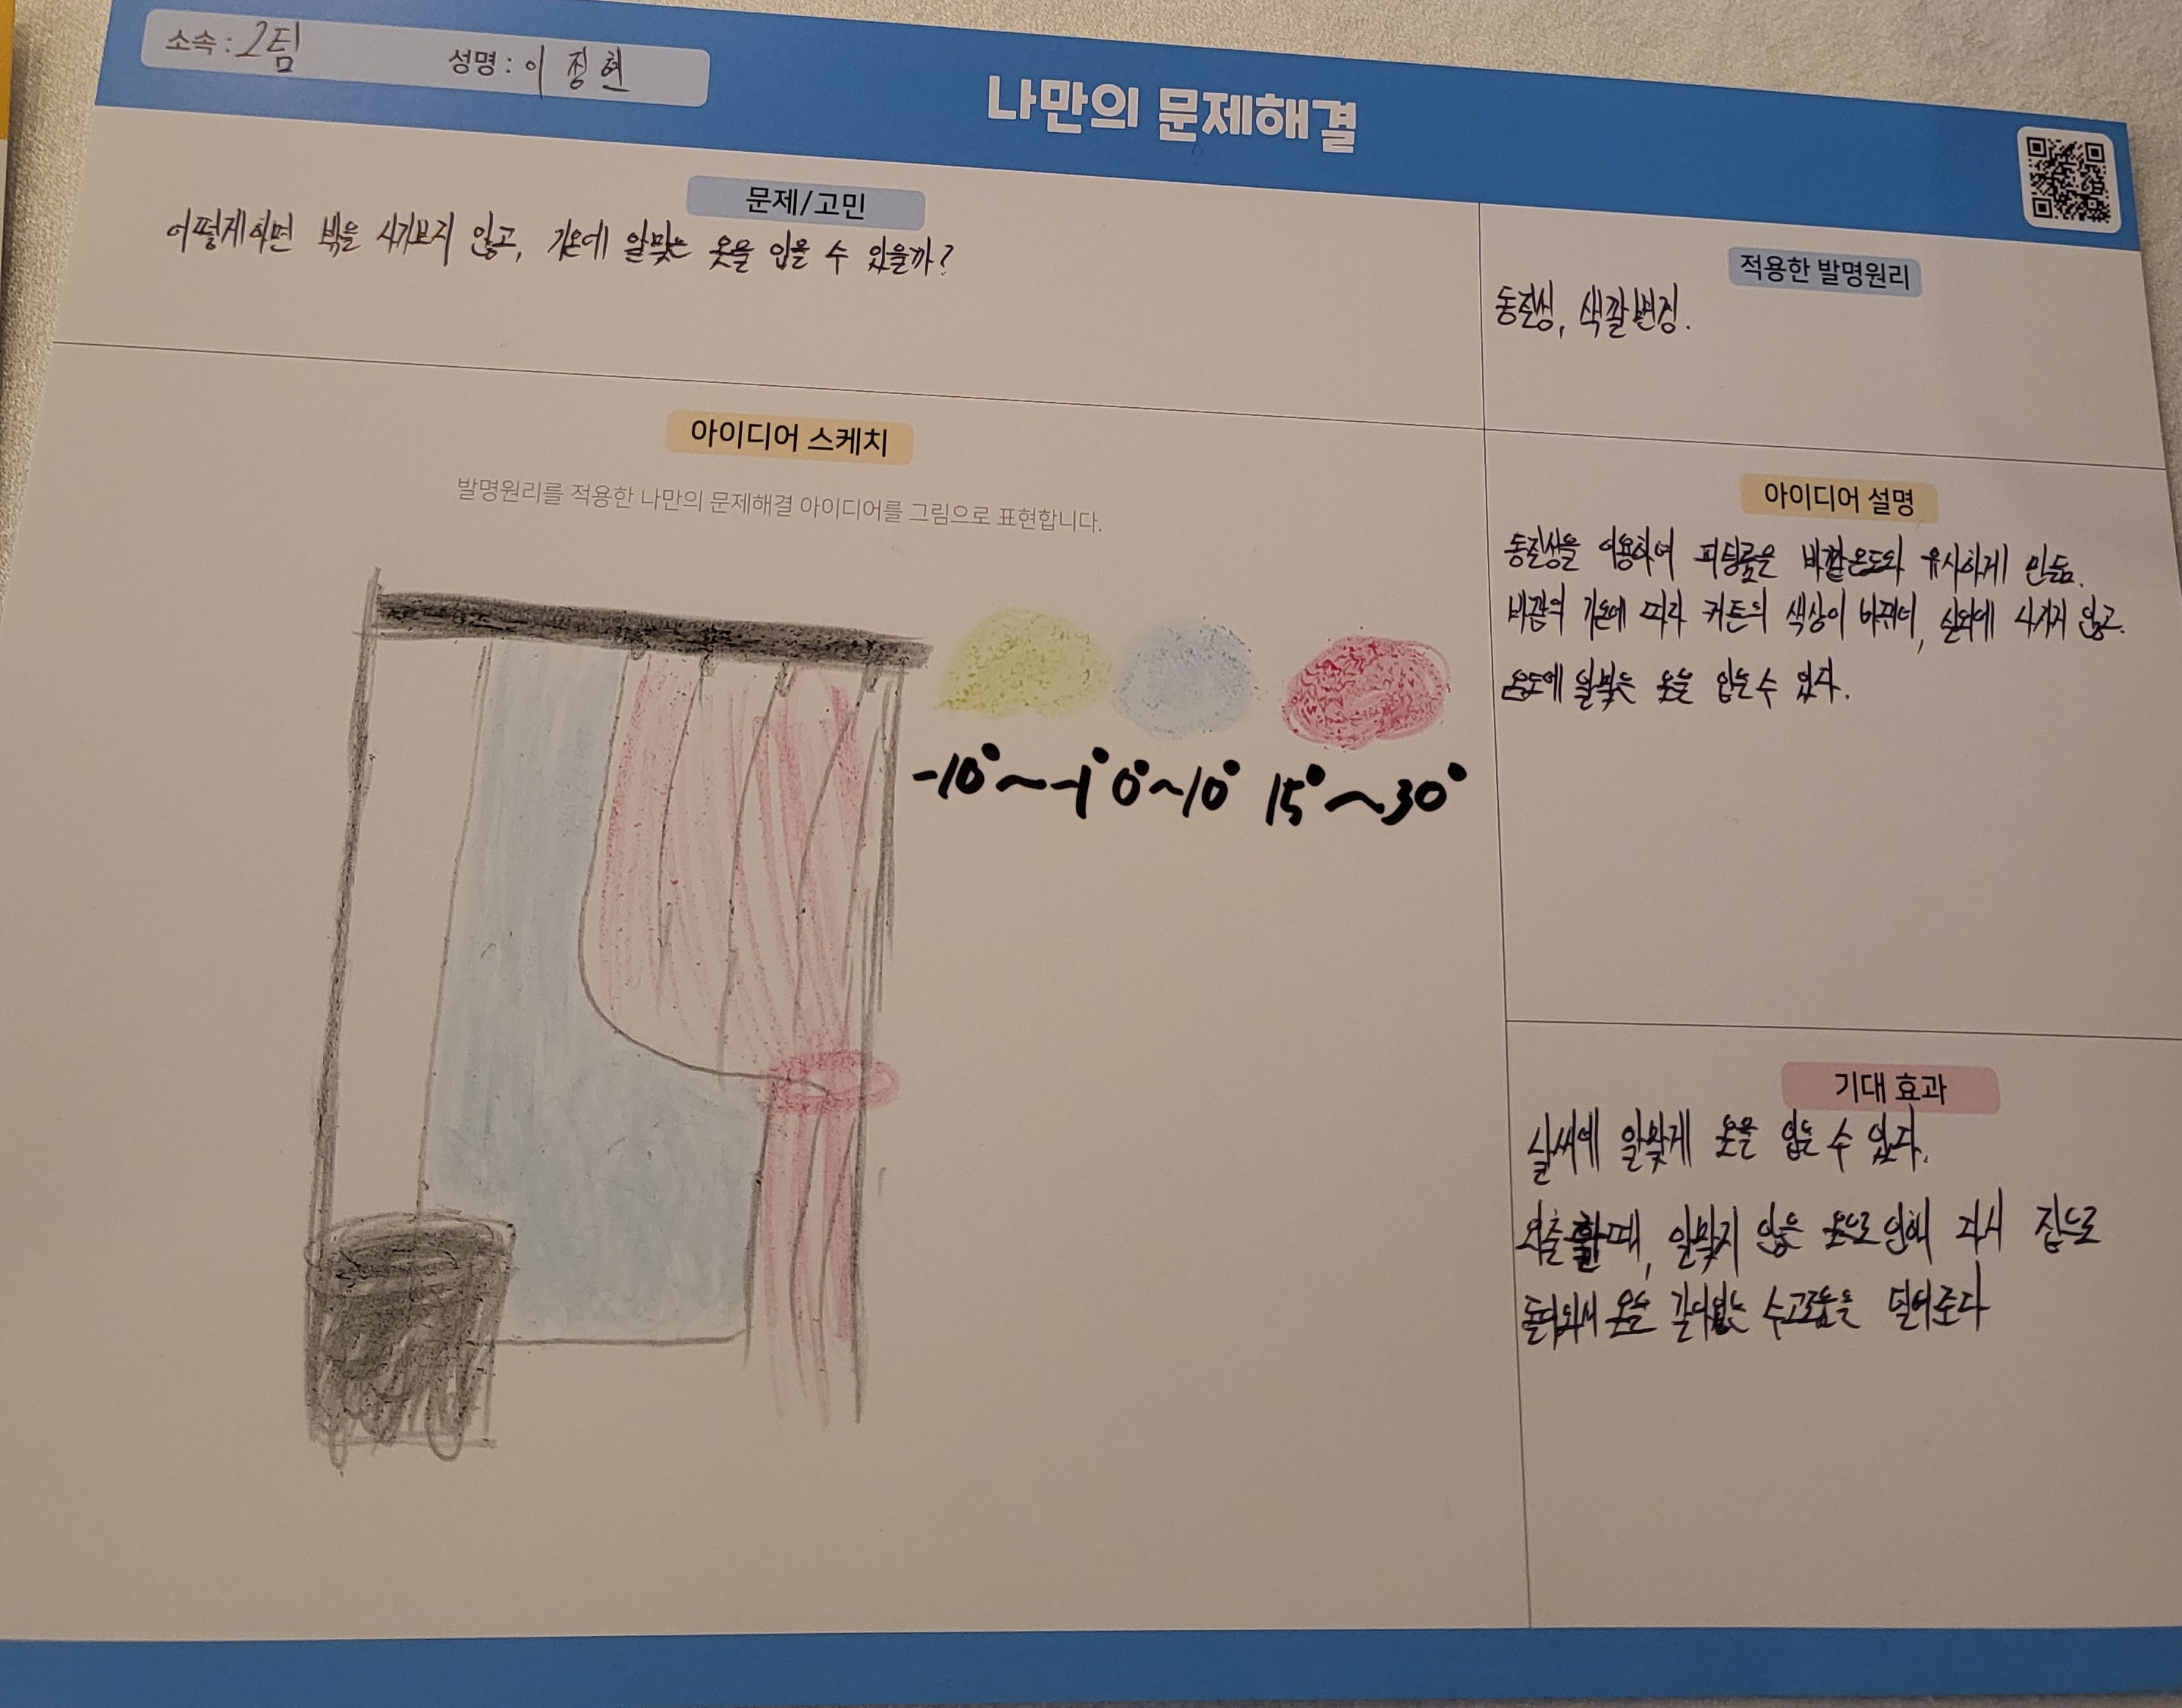 소속 : 2팀
성명 : 이정현
나만의 문제해결
문제/고민
어떻게하면 밖을 나가보지 않고, 기온에 알맞는 옷을 입을 수 있을까?
적용한 발명원리
동질성, 색깔변경.
아이디어 스케치
발명원리를 적용한 나만의 문제해결 아이디어를 그림으로 표현합니다.
-10°~-1° 0°~10° 15°~30°
아이디어 설명
동질성을 이용하여 피팅룸은 바깥온도와 유사하게 만듦.
바깥의 기온에 따라 커튼의 색상이 바뀌어, 실외에 나가지 않고.
온도에 알맞은 옷을 입는수 있다.
기대 효과
날씨에 알맞게 옷을 입는 수 있다.
외출 할때, 알맞지 않은 옷으로 인해 다시 집으로
돌아와서 옷을 갈아입는 수고로움을 덜어준다